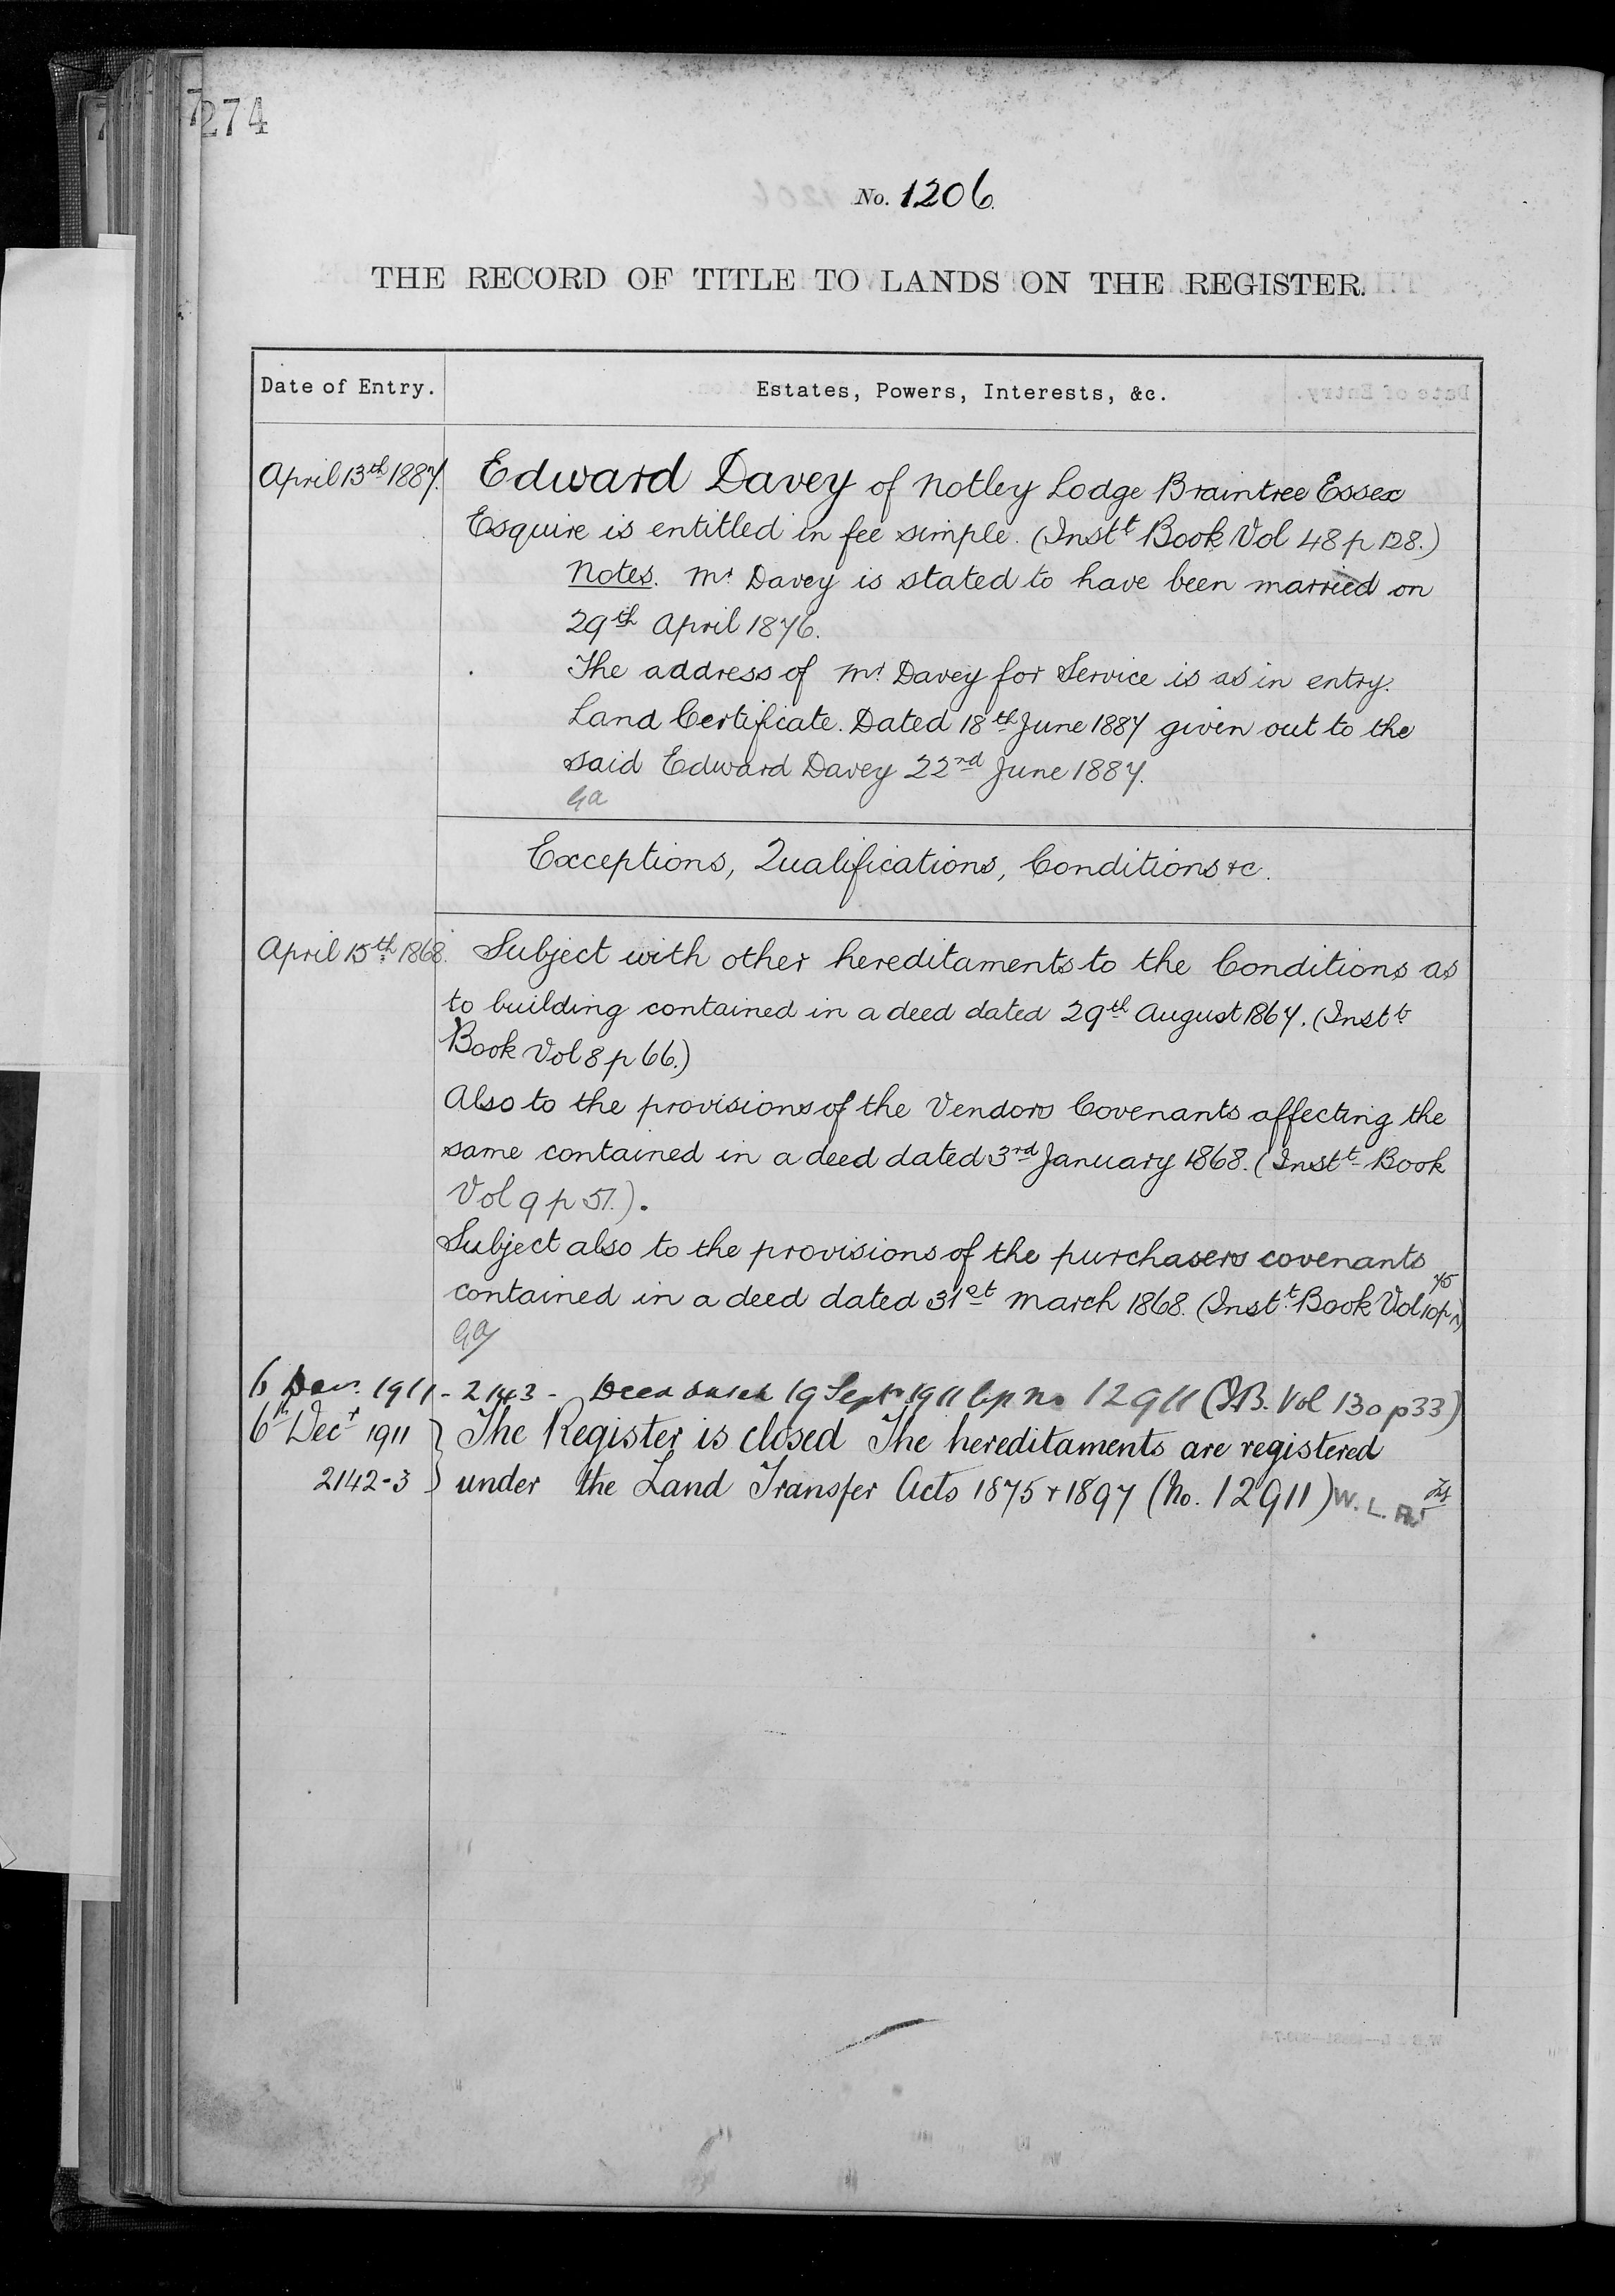 274
No. 1206.
THE RECORD OF TITLE TO LANDS ON THE REGISTER.
Date of Entry. Estates, Powers, Interests, &c.
April 13th 1887. Edward Davey of Notley Lodge Braintree Essex
Esquire is entitled in fee simple. (Instt Book Vol 48 p 128.)
Notes. Mr Davey is stated to have been married on
29th April 1876.
The address of Mr Davey for Service is as in entry.
Land Certificate. Dated 18th June 1887 given out to the
said Edward Davey 22nd June 1887.
Ga
Exceptions, Qualifications, Conditions &c.
April 15th 1868. Subject with other hereditaments to the Conditions as
to building contained in a deed dated 29th August 1867. (Instt
Book Vol 8 p 66.)
Also to the provisions of the Vendors Covenants affecting the
same contained in a deed dated 3rd January 1868. (Instt Book
Vol 9 p 51.).
Subject also to the provisions of the purchasers covenants
contained in a deed dated 31st March 1868. (Instt Book Vol 10 p 75)
Ga
6 1911 - 2143 - Deed dated 19 Sept 1911 No 12911 (I.B. Vol 130 p 33)
6th Decr 1911 } The Register is closed The hereditaments are registered
2142-3 } under the Land Transfer Acts 1875 & 1897 (No. 12911) W. L.